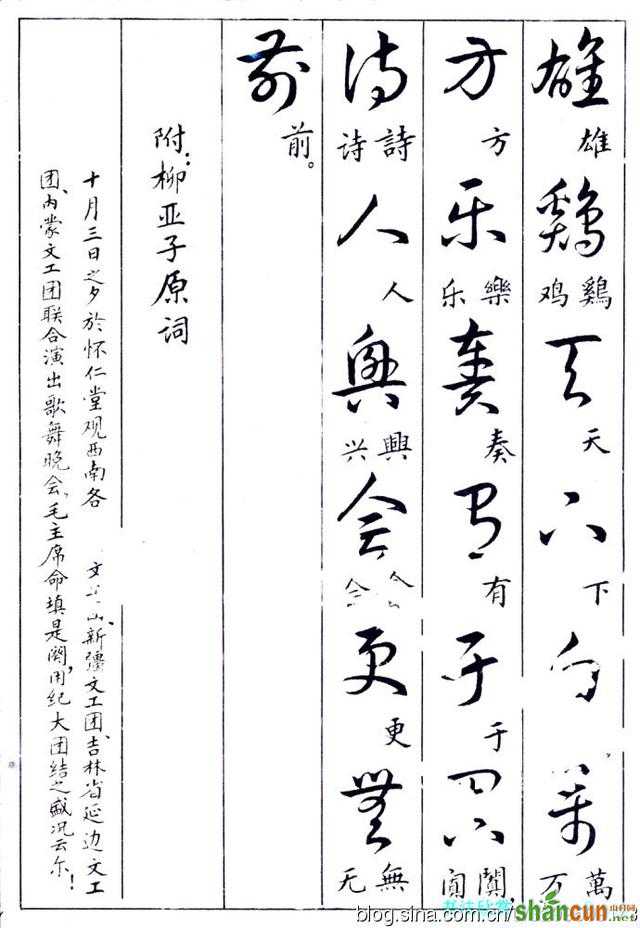 雄鷄天下白萬
雄 鸡鷄 天 下 万萬
方乐奏有于闐
方 乐樂 奏 有 于 阗闐
诗人興会更無
诗詩 人 兴興 更 无無
前
前。
附：柳亚子原词
十月三日之夕於怀仁堂观西南各 文 、新疆文工团、吉林省延边文工
团、内蒙文工团联合演出歌舞晚会，毛主席命填是阕，用纪大团结之盛况云尔！
blog.sina.com.cn
shancun
.net